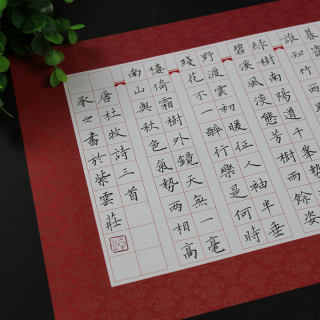 暮
誰知竹西
綠樹南陽道千峯勢
碧溪風淡態芳樹雨餘姿
野渡雲初暖征人袖半垂
殘花不一醉行樂是何時
樓倚霜樹外鏡天無一毫
南山與秋色氣勢兩相高
唐杜牧詩三首
之書於紫雲莊